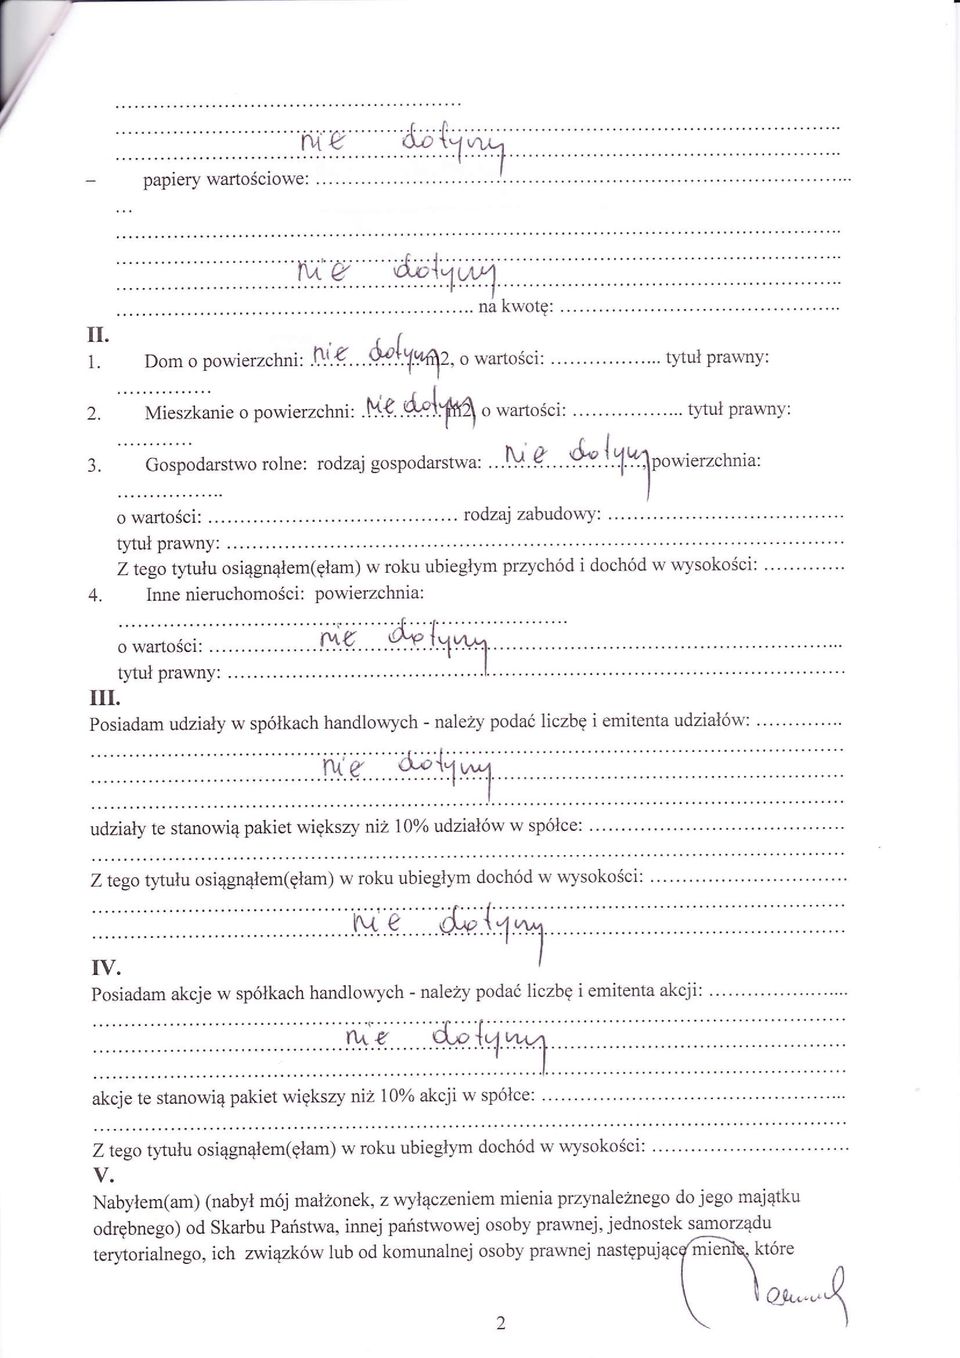 ..............................................
nie dotyczy
- papiery wartościowe: ..............................................
...
..............................................
nie dotyczy
.............................................. na kwotę: ..............................................
II.
1. Dom o powierzchni: nie dotyczy m2, o wartości: .................. tytuł prawny:
...............
2. Mieszkanie o powierzchni: nie dotyczy m2 o wartości: .................. tytuł prawny:
............
3. Gospodarstwo rolne: rodzaj gospodarstwa: nie dotyczy, powierzchnia:
.................
o wartości: ........................................ rodzaj zabudowy: .....................................
tytuł prawny: ..............................................
Z tego tytułu osiągnąłem(ęłam) w roku ubiegłym przychód i dochód w wysokości: .............
4. Inne nieruchomości: powierzchnia:
..............................................
o wartości: .................. nie dotyczy ..................
tytuł prawny: ..............................................
III.
Posiadam udziały w spółkach handlowych - należy podać liczbę i emitenta udziałów: ..............
nie dotyczy
..............................................
udziały te stanowią pakiet większy niż 10% udziałów w spółce: ........................................
..............................................
Z tego tytułu osiągnąłem(ęłam) w roku ubiegłym dochód w wysokości: ...............................
nie dotyczy
IV.
Posiadam akcje w spółkach handlowych - należy podać liczbę i emitenta akcji: ......................
nie dotyczy
..............................................
akcje te stanowią pakiet większy niż 10% akcji w spółce: ................................................
..............................................
Z tego tytułu osiągnąłem(ęłam) w roku ubiegłym dochód w wysokości: ...............................
V.
Nabyłem(am) (nabył mój małżonek, z wyłączeniem mienia przynależnego do jego majątku
odrębnego) od Skarbu Państwa, innej państwowej osoby prawnej, jednostek samorządu
terytorialnego, ich związków lub od komunalnej osoby prawnej następujące mienie, które
2